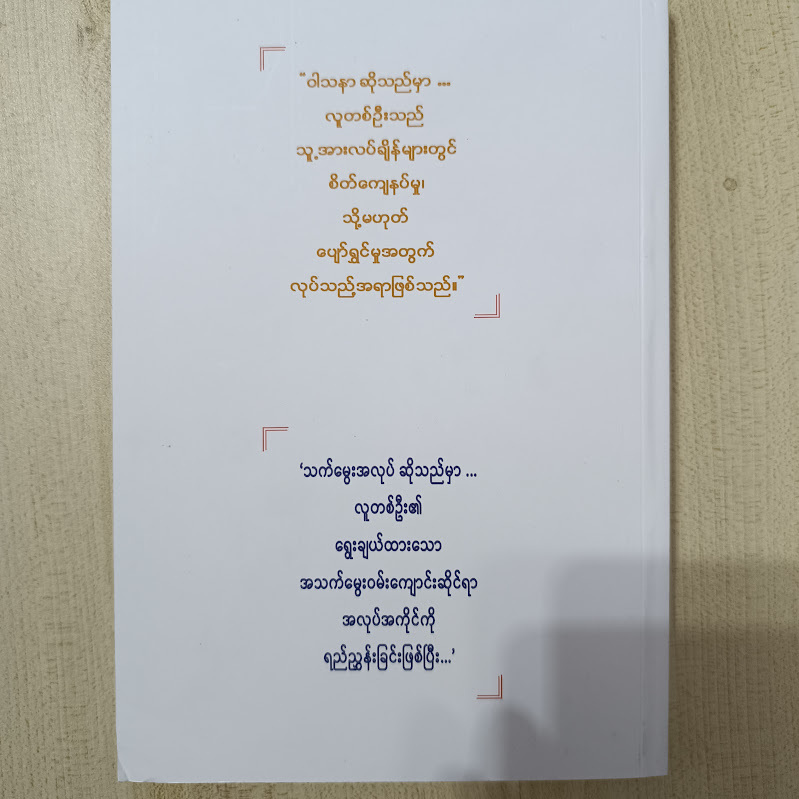 “ဝါသနာ ဆိုသည်မှာ ...
လူတစ်ဦးသည်
သူ့အားလပ်ချိန်များတွင်
စိတ်ကျေနပ်မှု၊
သို့မဟုတ်
ပျော်ရွှင်မှုအတွက်
လုပ်သည့်အရာဖြစ်သည်။”
‘သက်မွေးအလုပ် ဆိုသည်မှာ ...
လူတစ်ဦး၏
ရွေးချယ်ထားသော
အသက်မွေးဝမ်းကျောင်းဆိုင်ရာ
အလုပ်အကိုင်ကို
ရည်ညွှန်းခြင်းဖြစ်ပြီး...’